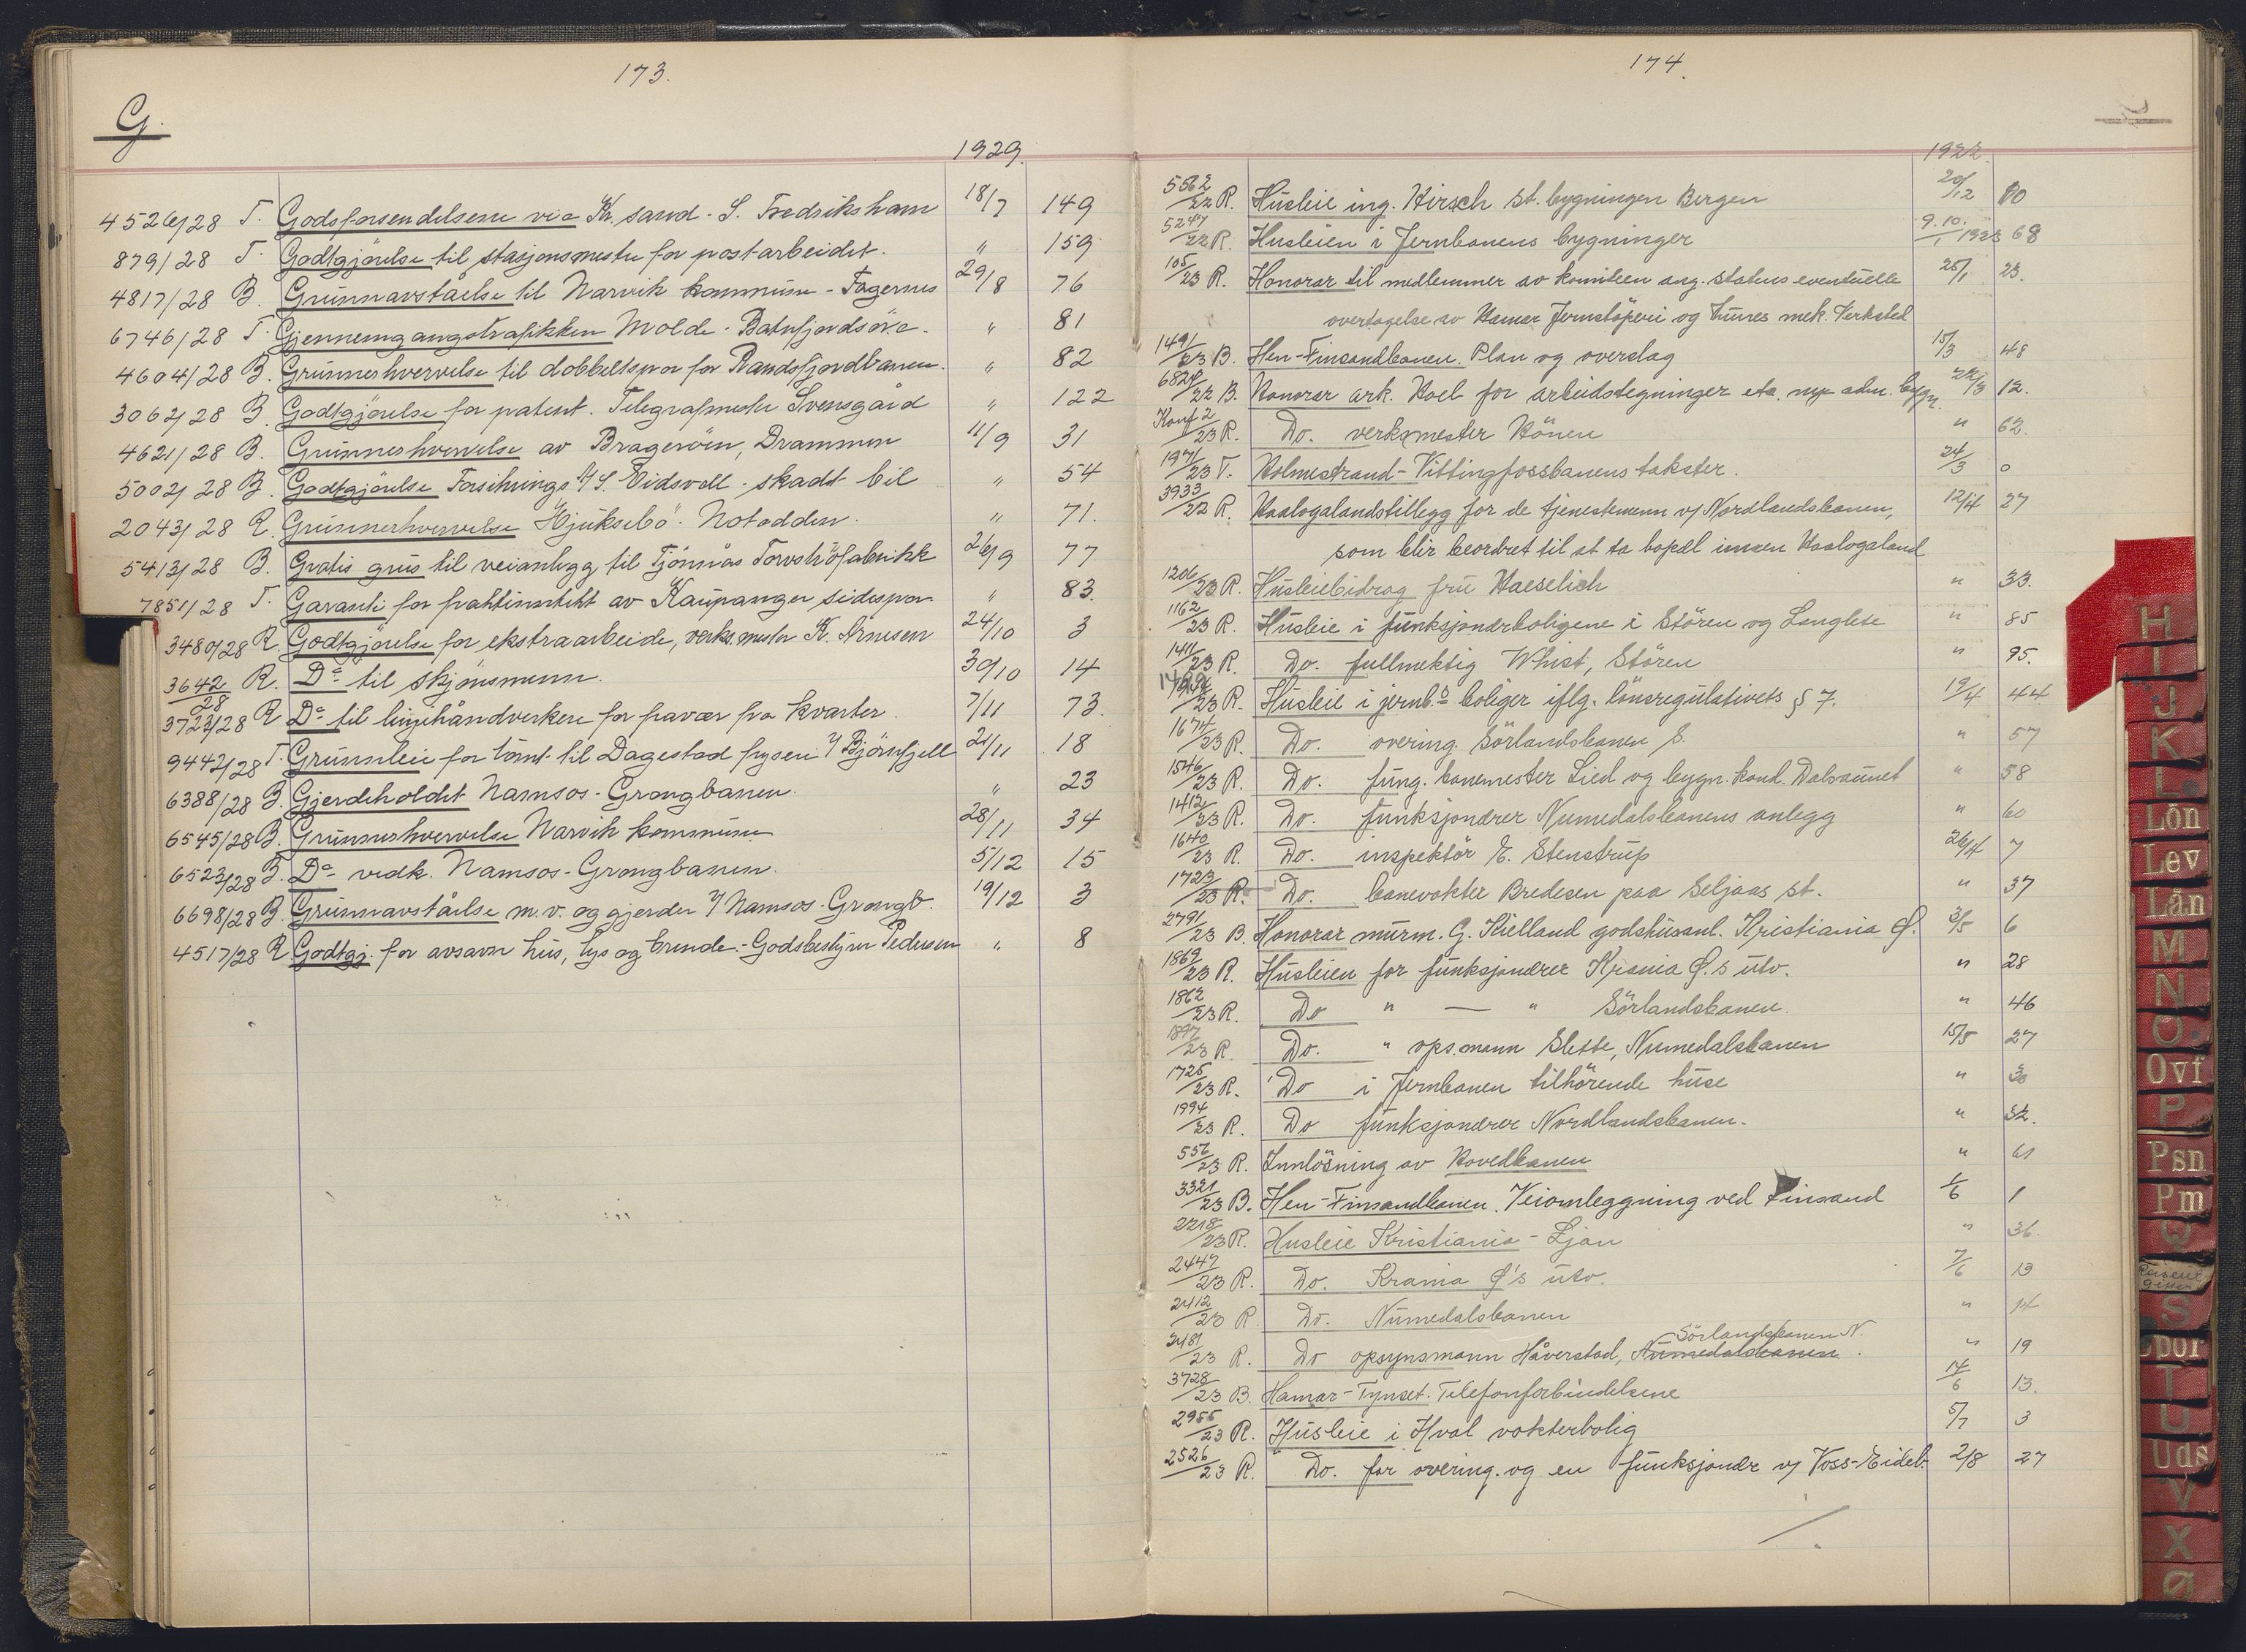 173.
G.
1929.
4526/28 T. Godsforsendelsene via Kr. sand - S. Fredrikshavn 18/7 149
879/28 T. Godtgjörelse til stasjonsmester for postarbeidet. " 159
4817/28 B. Grunnavståelse til Narvik kommune - Fagernes 29/8 76
6746/28 T. Gjennemgangstrafikken Molde - Batnfjordsöra. " 81
4604/28 B. Grunnerhvervelse til dobbeltspor for Randsfjordbanen. " 82
3062/28 B. Godtgjörelse for patent. Telegrafmester Svensgård " 122
4621/28 B. Grunnerhvervelse av Bragerøen, Drammen 11/9 31
5002/28 B. Godtgjörelse Forsikrings A/S. Eidsvoll - skadet bil " 54
2043/28 R. Grunnerhvervelse "Hjuksebö" - Notodden. " 71.
5413/28 B. Gratis grus til veianlegg til Tjönnås Torvströfabrikk 26/9 77
7851/28 T. Garanti for fraktinntekt av Kaupanger sidespor " 83.
3480/28 R. Godtgjörelse for ekstraarbeide, verksmester K. Arnesen 24/10 3
3642/28 R. Do til skjönsmenn. 30/10 14
3723/28 R Do til linjehåndverkere for fravær fra kvarter 7/11 73.
9442/28 T. Grunnleie for tömt til Dagestad frysen v/ Björnfjell 21/11 18
6388/28 B. Gjerdeholdet Namsos - Grongbanen. " 23
6545/28 B. Grunnerhvervelse Narvik kommune 28/11 34
6523/28 B. Do vedk. Namsos - Grongbanen. 5/12 15
6698/28 B. Grunnavståelse m.v. og gjerder v/ Namsos - Grongb. 19/12 3
4517/28 R Godtgj. for avsavn hus, lys og brende - Godsbestyrer Pedersen " 8
174.
1922.
5562/22 R. Husleie ing. Hirsch st. bygningen Bergen 20/12 80
5247/22 R. Husleien i Jernbanens bygninger 9.10./1 1923 68
105/23 R. Honorar til medlemmer av komiteen ang. statens eventuelle 25/1 23.
overtagelse av Hamar Jernstöperi og Lunes mek. Verksted
1491/23 B. Hen-Finsandbanen. Plan og overslag 15/3 48
6824/22 B. Honorar ark. Hoel for arbeidstegninger etc. nye adm. bygn. 22/3 12.
Konf 2/23 R. Do. verksmester Hönen " 62.
1971/23 T. Holmestrand - Vittingfossbanens takster. 24/3 0
3933/22 R. Haalogalandstillegg for de tjenestemenn v/ Nordlandsbanen, 12/4 27
som blir beordret til at ta bopæl innen Haalogaland
1206/23 R. Husleiebidrag fru Haeselich " 33.
1162/23 R. Husleie i funksjonærboligene i Stören og Langlete " 85
1411/23 R. Do. fullmektig Whist, Stören " 95.
/23 R. Husleie i jernb.s boliger iflg. lönsregulativets § 7. 19/4 44
1674/23 R. Do. overing. Sörlandsbanen S. " 57
1546/23 R. Do. fung. banemester Lied og bygn. kont. Dalsaunet " 58
1412/23 R. Do. funksjonærer Numedalsbanens anlegg " 60
1640/23 R. Do. inspektör E. Stenstrup 26/4 7
1723/23 R. Do. banevokter Bredesen paa Seljaas st. " 37
2791/23 B. Honorar murm. G. Kielland godshusanl. Kristiania Ø. 3/5 6
1869/23 R. Husleien for funksjonærer Krania Ø.s utv. " 28
1862/23 R. Do " — " Sörlandsbanen. " 46
1897/23 R. Do. " ops.mann Slette, Numedalsbanen 15/5 27
1725/23 R. Do i Jernbanen tilhörende huse " 30
1994/23 R. Do funksjonærer Nordlandsbanen. " 32.
556/23 R. Innlösning av Hovedbanen " 61
3321/23 B. Hen - Finsandbanen. Veiomleggning ved Finsand 1/6 1
2218/23 R. Husleie Kristiania - Ljan " 36.
2447/23 R. Do. Krania Ø's utv. 7/6 13
2412/23 R Do. Numedalsbanen " 14
Sörlandsbanen N.
2481/23 R. Do opsynsmann Håverstad, Numedalsbanen. " 19
3728/23 B. Hamar - Tynset. Telefonforbindelsene 14/6 13.
2955/23 R. Husleie i Hval vokterbolig 5/7 3
2526/23 R. Do. for overing. og en funksjonær v/ Voss-Eideb. 2/8 27
H
I
J
K
L
Lön
Lev
Lån
M
N
O
Ovf
P
Psn
Pm
Q
S
Spor
T
U
Uds
V
X
Ø